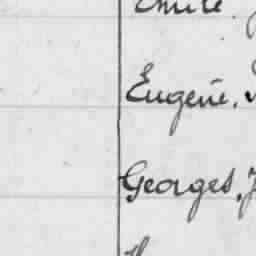 Emile.
Eugène.
Georges.